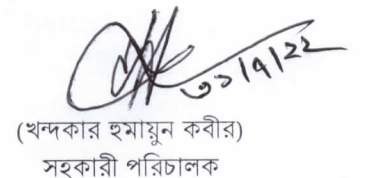 ৩১/৭/২২
(খন্দকার হুমায়ুন কবীর)
সহকারী পরিচালক